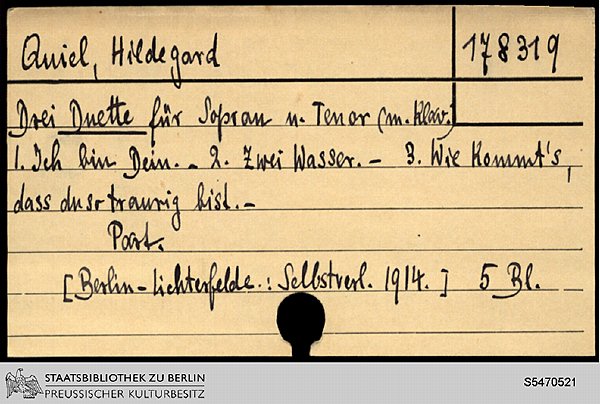 Quiel, Hildegard
178319
Drei Duette für Sopran u. Tenor (m. Klav.)
1. Ich bin Dein. - 2. Zwei Wasser. - 3. Wie kommt's,
dass du so traurig bist. -
Part.
[Berlin-Lichterfelde: Selbstverl. 1914.] 5 Bl.
STAATSBIBLIOTHEK ZU BERLIN
PREUSSISCHER KULTURBESITZ
S5470521